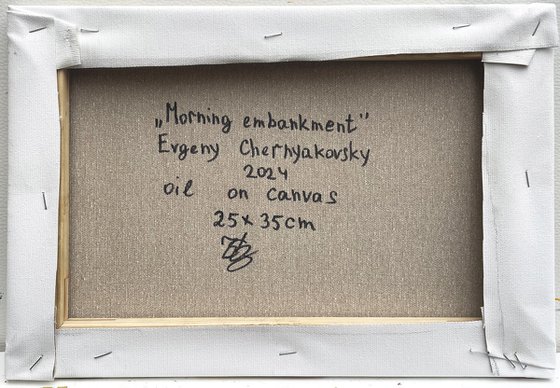 „Morning embankment”
Evgeny Chernyakovsky
2024
oil on canvas
25x35cm